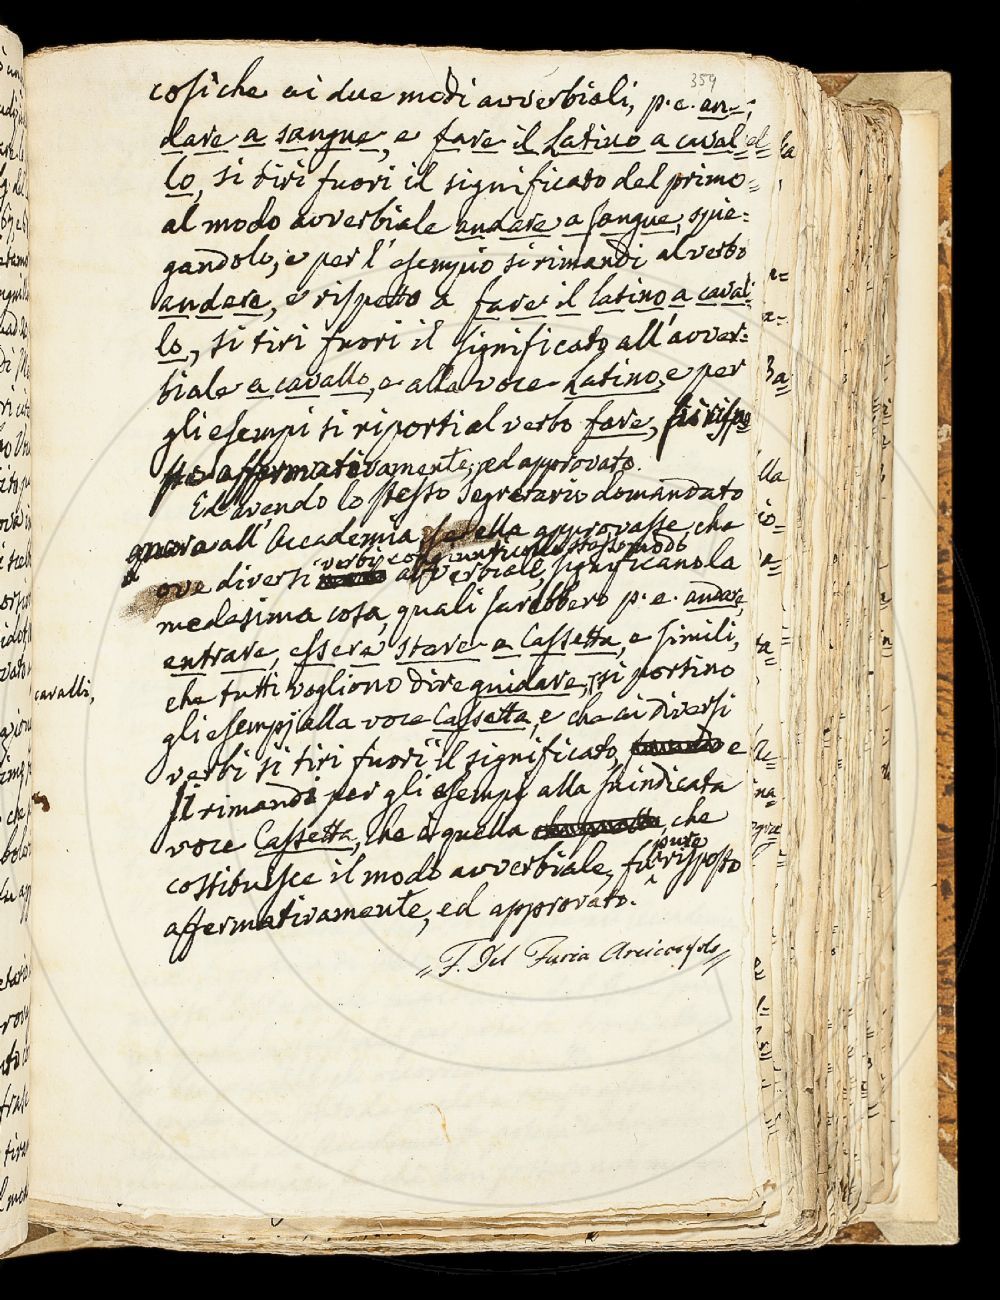 359
cosiche ai due modi avverbiali, p. e. an-
dare a sangue, e fare il Latino a caval
lo, si tiri fuori il significato del primo
al modo avverbiale andare a sangue, spie=
gandolo, e per l'esempio si rimandi al verbo
andare, e rispetto a fare il latino a caval
lo, si tiri fuori il significato all'avver=
biale a cavallo, e alla voce Latino, e per
gli esempi si riporti al verbo fare, fu rispo
sto affermativamente, ed approvato.
Ed avendo lo stesso Segretario domandato
ancora all'Accademia se ella approvasse che
verbi congiunti collo stesso modo
ove diversi avverbiale, significano la
medesima cosa, quali sarebbero p. e. andare,
entrare, essere, stare a Cassetta, e simili,
che tutti vogliono dire guidare, si portino
cavalli,
gli esempj alla voce Cassetta, e che ai diversi
verbi si tiri fuori il significato, e
si rimandi per gli esempj alla suindicata
voce Cassetta, che è quella, che
pure
costituisce il modo avverbiale, fu risposto
affermativamente, ed approvato.
F. Del Furia Arciconsolo